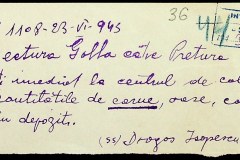 1108-23-VI-943
36
ectura Golta catre Pretura
imediat la centrul de co
cantitățile de carne, oase, co
în depozit.
(ss) Dragos Isopescu